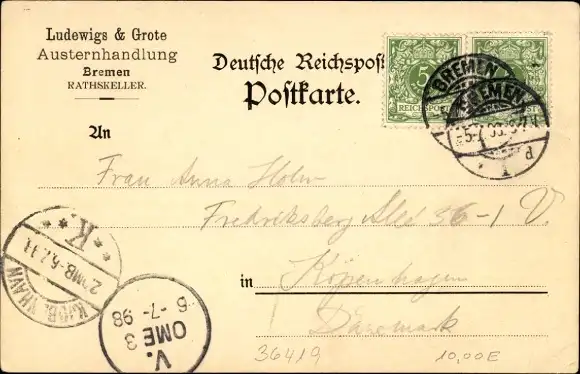 Ludewigs & Grote
Austernhandlung
Bremen
RATHSKELLER.
Deutsche Reichspost
Postkarte.
5
REICHSPOST
BREMEN
BREMEN
An
Frau Anna Holm
Fredriksberg Allé 56-1 V.
in Köpenhagen
Dänemark
K.
KJØBENHAVN
V.
OME 3
6-7-98
36419
10,00E